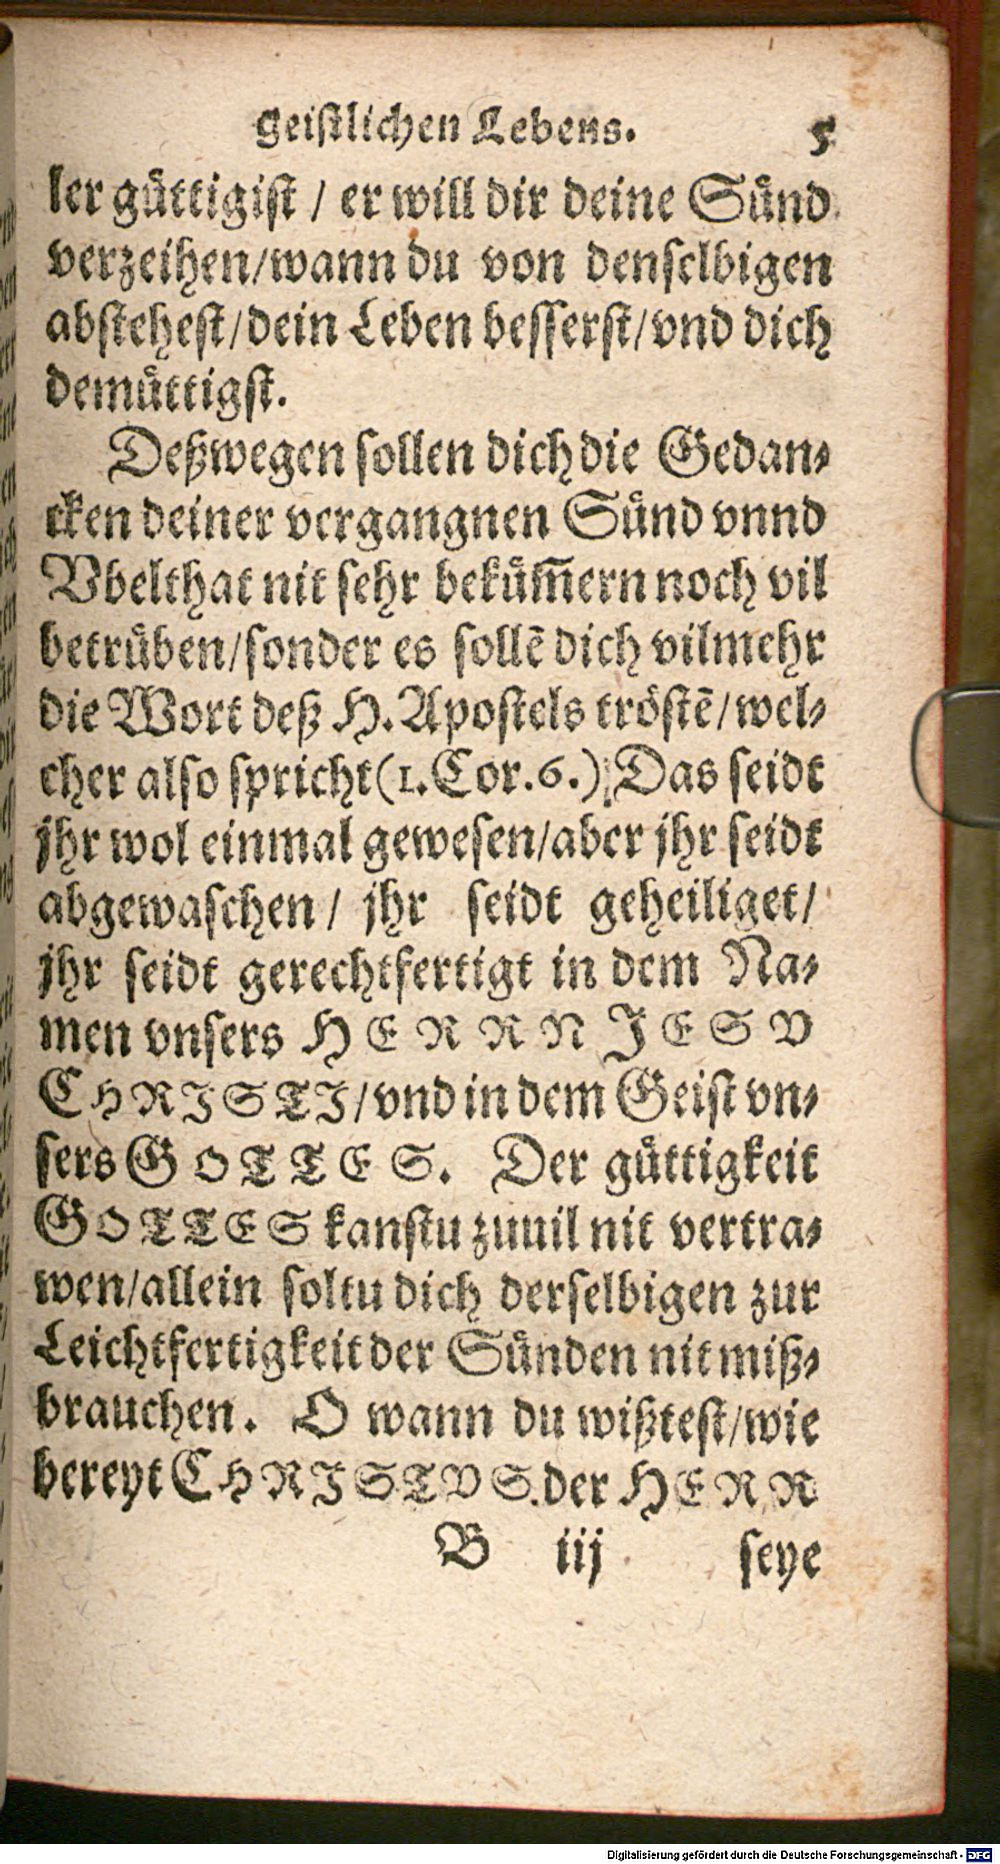 geistlichen Lebens. 5
ler güttigist / er will dir deine Sünd
verzeihen/wann du von denselbigen
abstehest/dein Leben besserst/vnd dich
demüttigst.
Deßwegen sollen dich die Gedan-
cken deiner vergangnen Sünd vnnd
Vbelthat nit sehr beküm̄ern noch vil
betrüben/sonder es sollē dich vilmehr
die Wort deß H. Apostels tröstē/wel-
cher also spricht(1. Cor. 6.) Das seidt
jhr wol einmal gewesen/aber jhr seidt
abgewaschen/ jhr seidt geheiliget/
jhr seidt gerechtfertigt in dem Na-
men vnsers HERRN JESV
CHRISTI/vnd in dem Geist vn-
sers GOTTES. Der güttigkeit
GOTTES kanstu zuuil nit vertra-
wen/allein soltu dich derselbigen zur
Leichtfertigkeit der Sünden nit miß-
brauchen. O wann du wißtest/wie
bereyt CHRISTVS der HERR
B iij seye
Digitalisierung gefördert durch die Deutsche Forschungsgemeinschaft - DFG